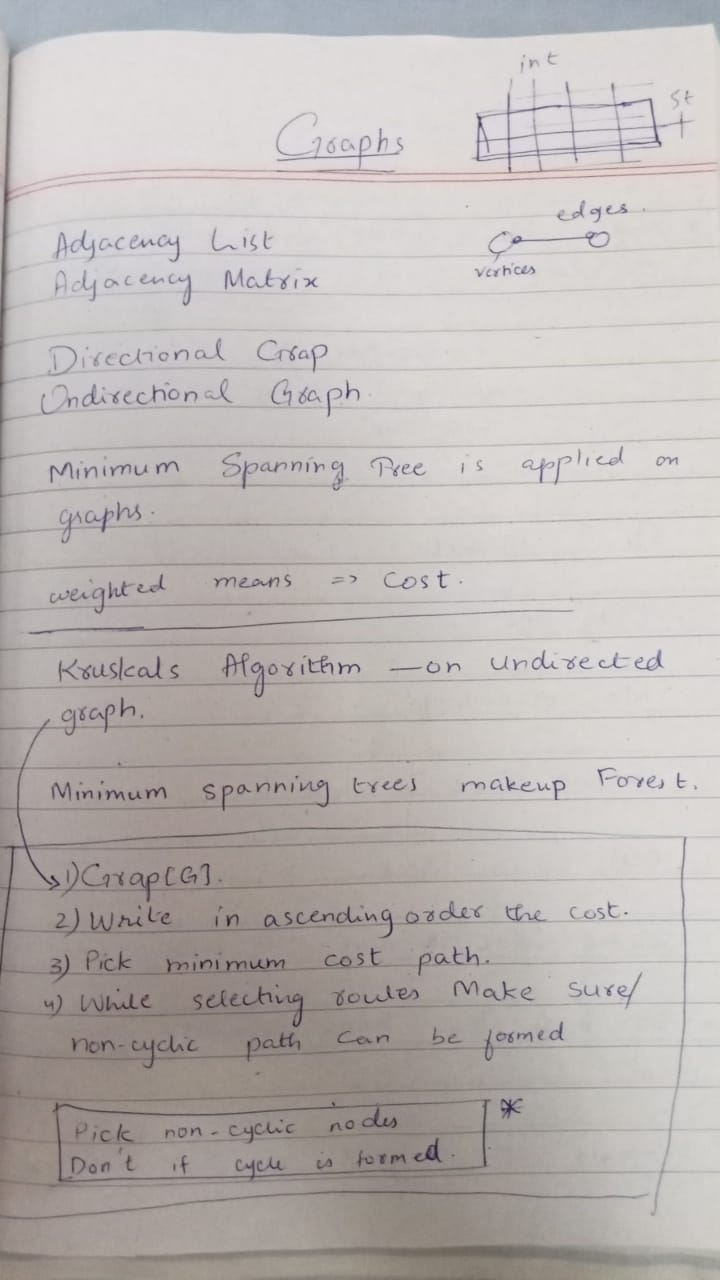 int
St
Graphs
edges.
Adjacency List
vertices
Adjacency Matrix
Directional Grap
Undirectional Graph.
Minimum Spanning Tree is applied on
graphs.
weighted means => Cost.
Kruskals Algorithm - on undirected
graph.
Minimum spanning trees makeup Forest.
1) Grap[G].
2) Write in ascending order the cost.
3) Pick minimum cost path.
4) While selecting routes Make sure/
non-cyclic path can be formed
Pick non-cyclic nodes *
Don't if cycle is formed.